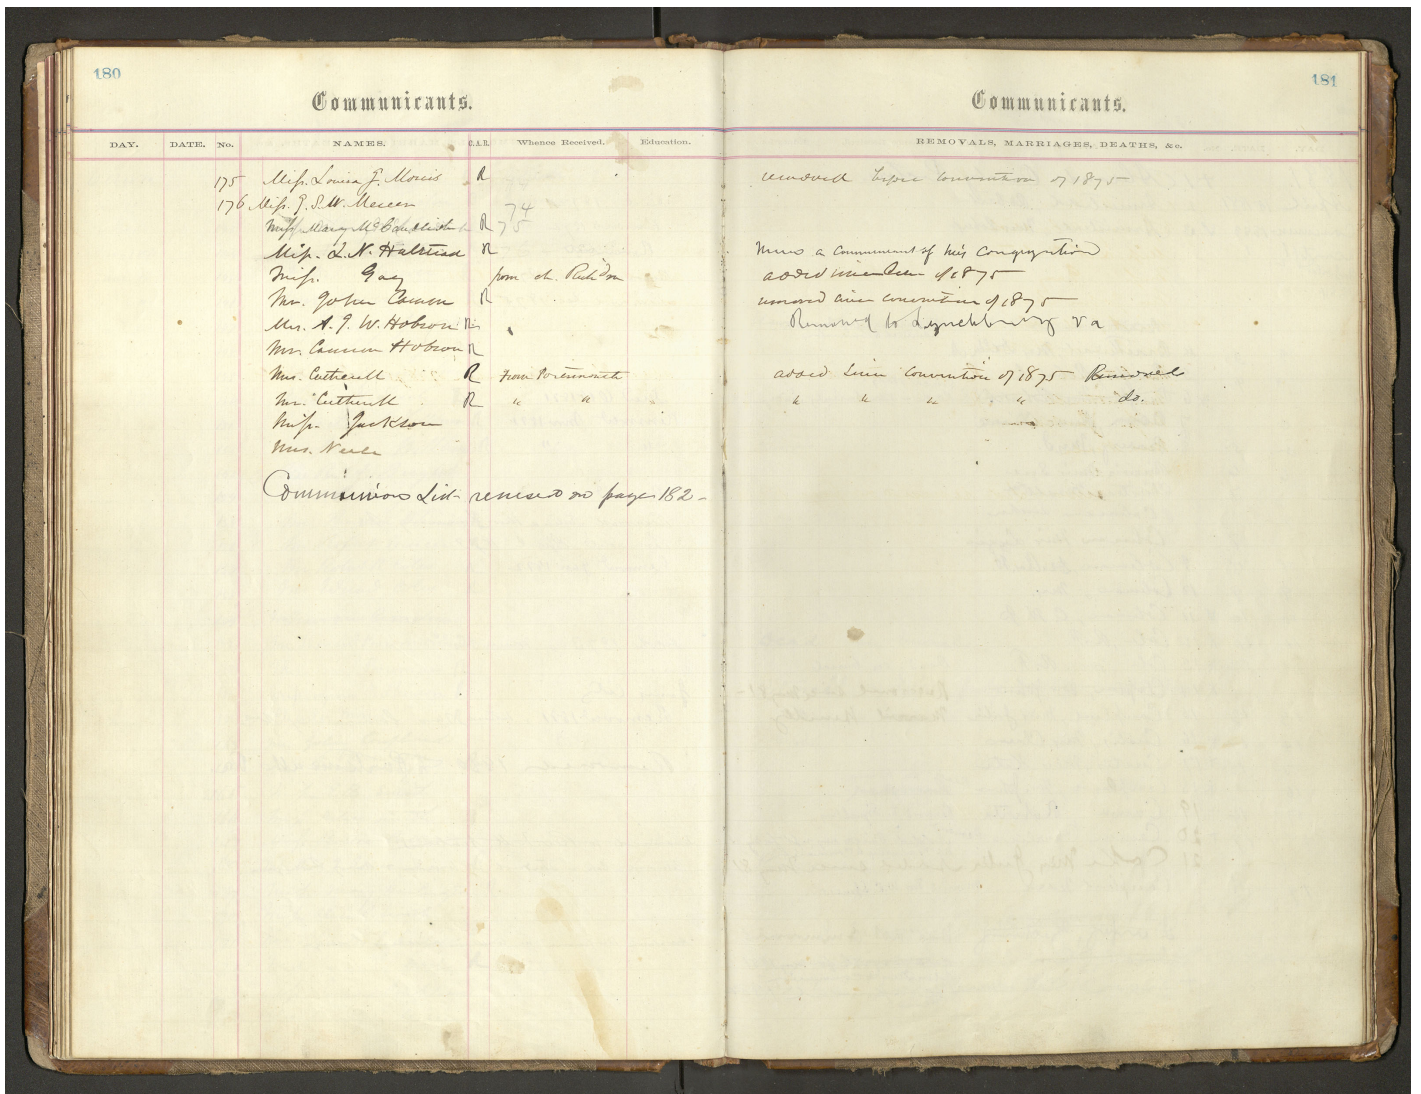 180
Communicants.
DAY. DATE. No. NAMES. C.A.R. Whence Received. Education.
175 Miss. Louisa J. Morris R
176 Miss. J. S. W. Mercer 74
Miss Mary McCandlish R 75
Miss. L. N. Halstead R
Miss. Gay from ch. Richdm
Mr. John Cannon R
Mrs. A. J. W. Hobson R
Mr. Cannon Hobson R
Mrs. Cutherell R from Portsmouth
Mr. Cutherell R " "
Miss. Jackson
Mrs.
Communions List revised on page 182-
181
Communicants.
REMOVALS, MARRIAGES, DEATHS, &c.
removed before convention of 1875
a communicant of his congregation
added of 1875
removed since convention of 1875
Removed to Lynchburg Va
added since convention of 1875 Removed
" " " " do.